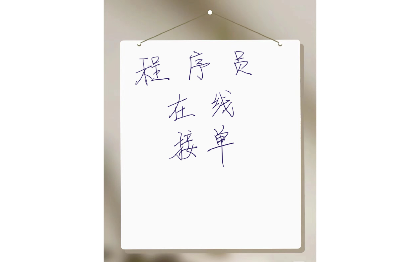 程序员
在线
接单